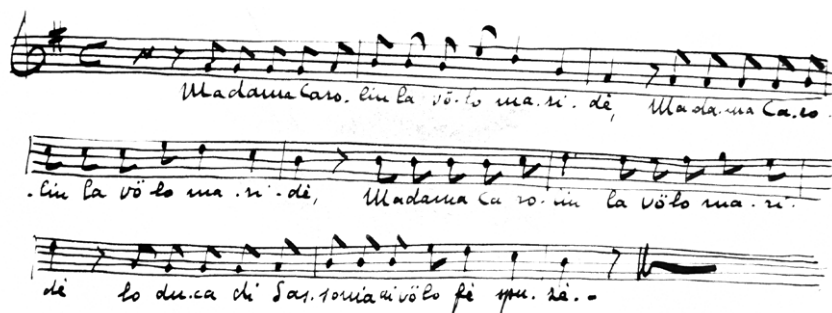 Madama Caro. lin la vö. lo ma. ri. dè, Madama Ca. ro.
. lin la vö lo ma. ri. dè, Madama Ca ro. lin la vö lo ma. ri.
dè lo du. ca di Sas. sonia ai völo fè spu. sè. -